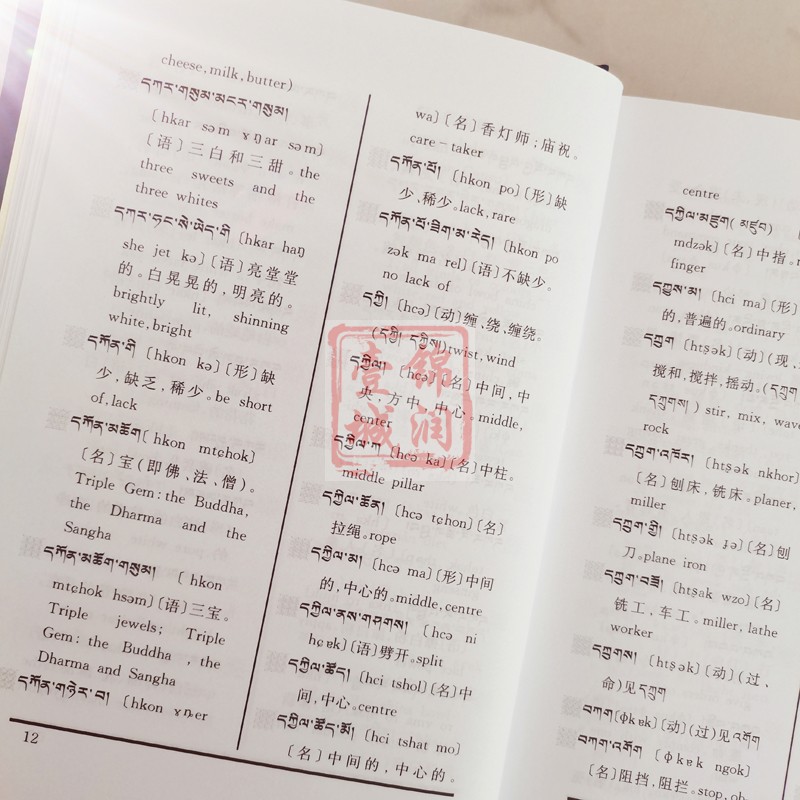 cheese, milk, butter)
དཀར་གསུམ་མངར་གསུམ།
〔hkar səm ɣŋar səm〕
〔语〕三白和三甜。the
three sweets and the
three whites
དཀར་ཧང་སེ་ཡེད་གི 〔hkar haŋ
she jet kə〕〔语〕亮堂堂
的。白晃晃的,明亮的。
brightly lit, shinning
white, bright
དཀོན་གི 〔hkon kə〕〔形〕缺
少,缺乏,稀少。be short
of, lack
དཀོན་མཆོག〔hkon mtɕhok〕
〔名〕宝(即佛、法、僧)。
Triple Gem: the Buddha,
the Dharma and the
Sangha
དཀོན་མཆོག་གསུམ། 〔hkon
mtɕhok hsəm〕〔语〕三宝。
Triple jewels; Triple
Gem: the Buddha, the
Dharma and Sangha
དཀོན་གཉེར་བ། 〔hkon ɣȵer
12
wa〕〔名〕香灯师;庙祝。
care-taker
དཀོན་པོ། 〔hkon po〕〔形〕缺
少,稀少。lack, rare
དཀོན་པོ་ཟིག་མ་རེད། 〔hkon po
zək ma rel〕〔语〕不缺少。
no lack of
དཀྲི། 〔hcə〕〔动〕缠、绕、缠绕。
twist, wind
དཀྱིལ། 〔hcə〕〔名〕中间,中
央,方中,中心。middle,
center
དཀྱིལ་ཀ 〔hcə ka〕〔名〕中柱。
middle pillar
དཀྱིལ་ཆོན། 〔hcə tɕhon〕〔名〕
拉绳。rope
དཀྱིལ་མ། 〔hcə ma〕〔形〕中间
的,中心的。middle, centre
དཀྱིལ་ནས་གཤགས། 〔hcə ni
hɕɐk〕〔语〕劈开。split
དཀྱིལ་ཚོད། 〔hci tshol〕〔名〕中
间,中心。centre
དཀྱིལ་ཚོད་མོ། 〔hci tshat mo〕
〔名〕中间的,中心的。
centre
དཀྱིལ་མཛུག( མཛུབ)
mdzək〕〔名〕中指。
finger
དཀྱུས་མ། 〔hci ma〕〔形〕
的,普遍的。ordinary
དཀྲུག 〔htʂək〕〔动〕(现,
搅和,搅拌,摇动。(དཀྲུག
དཀྲུགས།) stir, mix, wave
rock
དཀྲུག་འཁོར། 〔htʂək nkhor〕
〔名〕刨床,铣床。planer,
miller
དཀྲུག་གྲི། 〔htʂək ɟə〕〔名〕刨
刀。plane iron
དཀྲུག་བཟོ། 〔htʂak wzo〕〔名〕
铣工,车工。miller, lathe
worker
དཀྲུགས། 〔htʂək〕〔动〕(过、
命)见དཀྲུག
བཀག〔ɸkɐk〕〔动〕(过)见འགོག
བཀག་འགོག 〔ɸkɐk ngok〕
〔名〕阻挡,阻拦。stop, ob
锦润壹城